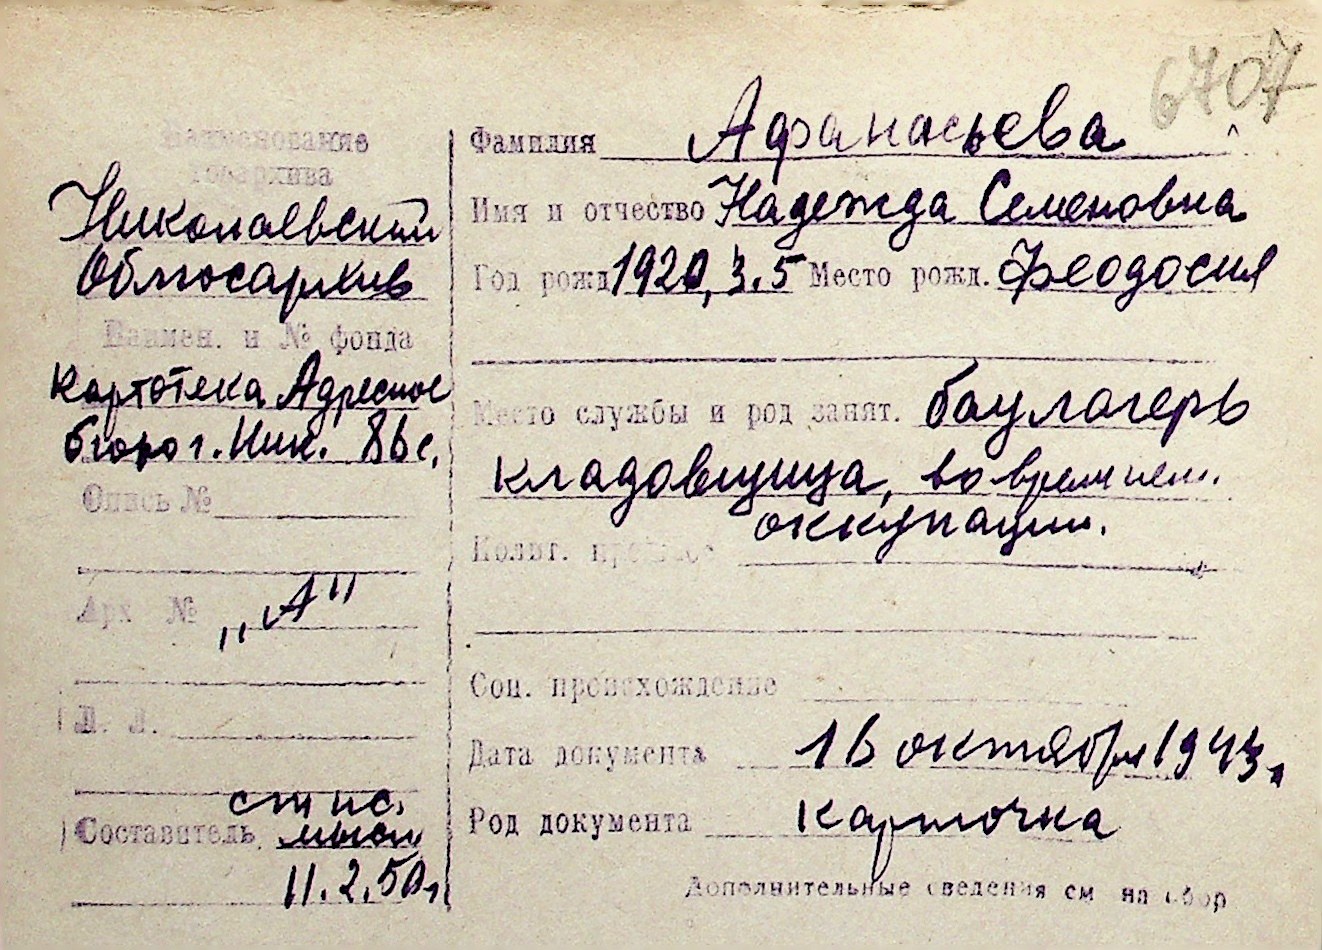 6707
Наименование
госархива
Николаевский
Облгосархив
Наимен. и № фонда
Картотека Адресное
бюро г. Ник. 86 с.
Опись №
Арх №
„А"
Л. Л.
Составитель
11.2.50 г.
Фамилия Афанасьева
Имя и отчество Надежда Семеновна
Год рожд 1920, 3.5 Место рожд. Феодосия
Место службы и род занят. баулагерь
кладовщица, во время нем.
оккупации.
Дата документа 16 октября 1943 г.
Род документа карточка
Соц. происхождение
Дополнительные сведения см на обор